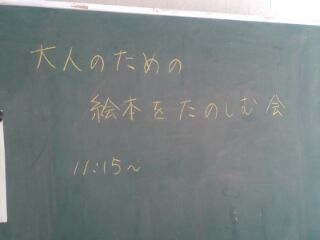 大人のための
絵本をたのしむ会
11:15~